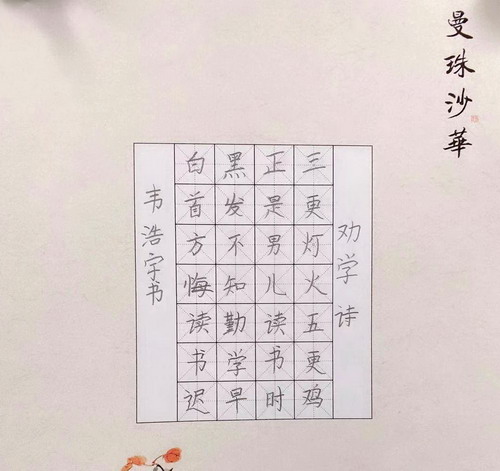 曼珠沙華
劝学诗
三更灯火五更鸡
正是男儿读书时
黑发不知勤学早
白首方悔读书迟
韦浩宇书